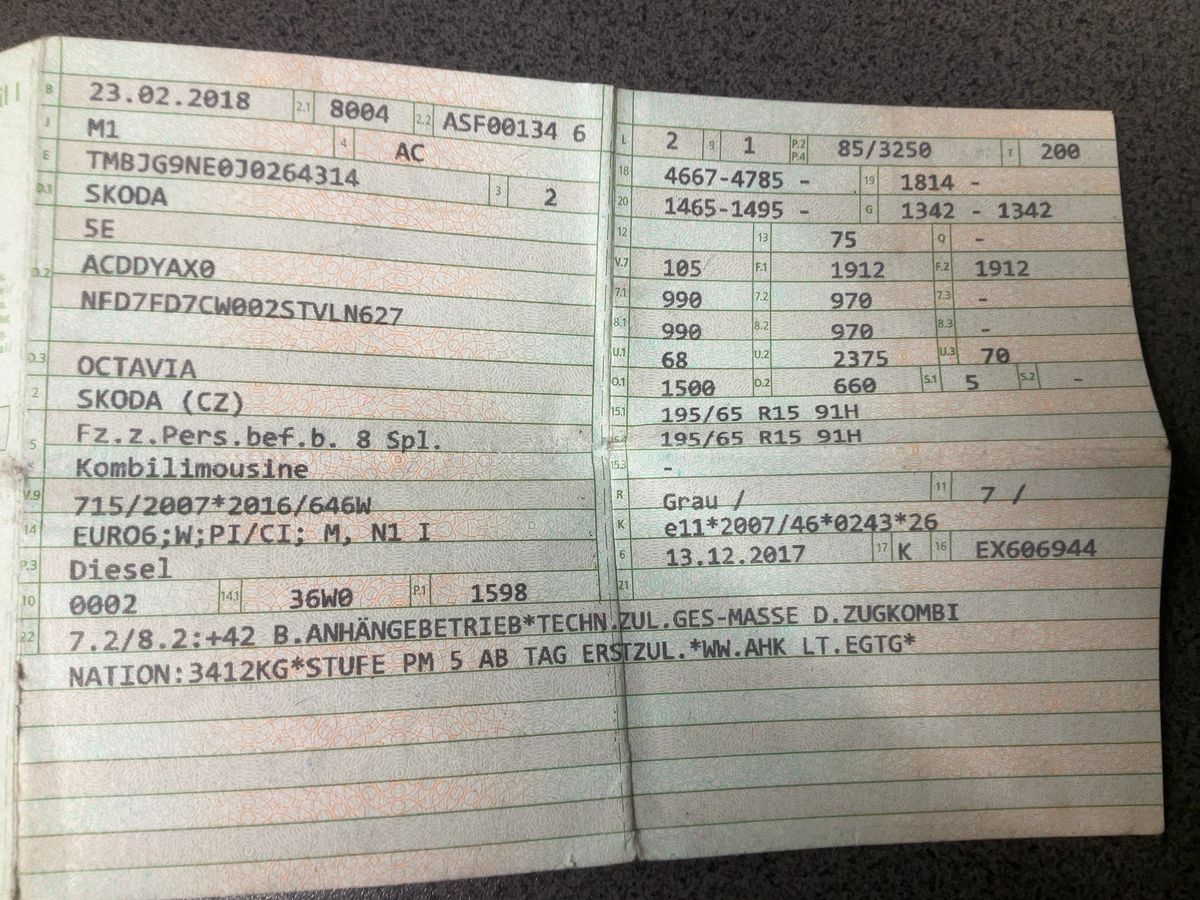 B 23.02.2018 2.1 8004 2.2 ASF00134 6
J M1 4 AC
E TMBJG9NE0J0264314 3 2
D.1 SKODA
5E
D.2 ACDDYAX0
NFD7FD7CW002STVLN627
D.3 OCTAVIA
2 SKODA (CZ)
5 Fz.z.Pers.bef.b. 8 Spl.
Kombilimousine
V.9 715/2007*2016/646W
14 EURO6;W;PI/CI; M, N1 I
P.3 Diesel
10 0002 14.1 36W0 P.1 1598
L 2 9 1 P.2 P.4 85/3250 T 200
18 4667-4785 - 19 1814 -
20 1465-1495 - G 1342 - 1342
12 13 75 Q -
V.7 105 F.1 1912 F.2 1912
7.1 990 7.2 970 7.3 -
8.1 990 8.2 970 8.3 -
U.1 68 U.2 2375 U.3 70
O.1 1500 O.2 660 S.1 5 S.2 -
15.1 195/65 R15 91H
195/65 R15 91H
15.3 -
R Grau / 11 7 /
K e11*2007/46*0243*26
6 13.12.2017 17 K 16 EX606944
21
22 7.2/8.2:+42 B.ANHÄNGEBETRIEB*TECHN.ZUL.GES-MASSE D.ZUGKOMBI
NATION:3412KG*STUFE PM 5 AB TAG ERSTZUL.*WW.AHK LT.EGTG*